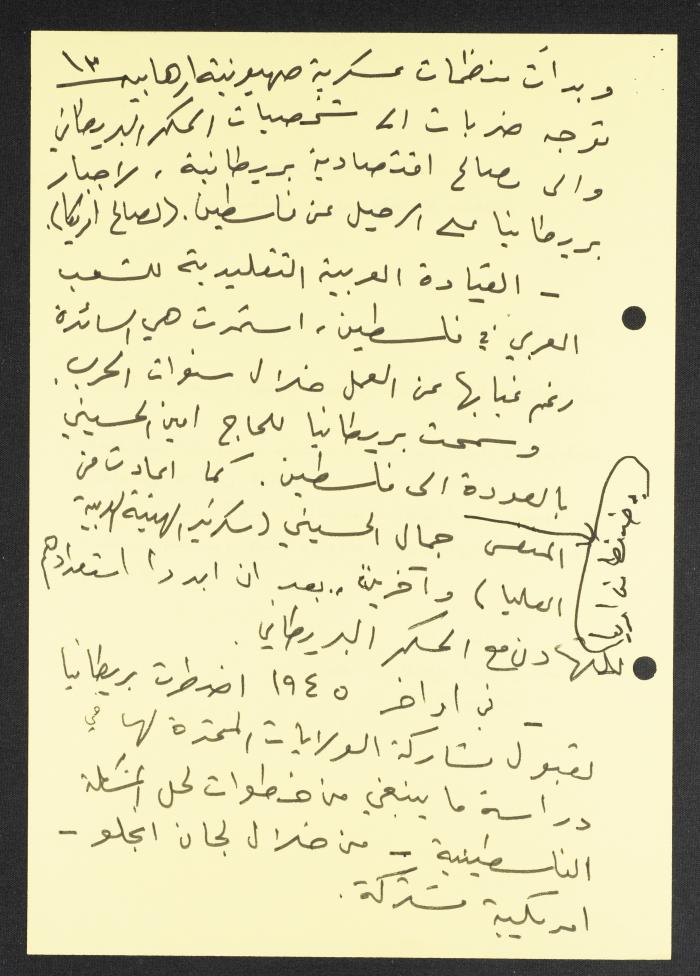 ١٣
وبدأت منظمات عسكرية صهيونية ارهابية
توجه ضربات الى شخصيات الحكم البريطاني
والى مصالح اقتصادية بريطانية، لاجبار
بريطانيا على الرحيل عن فلسطين. (لصالح أمريكا).
- القيادة العربية التقليدية للشعب
العربي في فلسطين، استمرت هي السائدة
رغم غيابها عن العمل خلال سنوات الحرب.
وسمحت بريطانيا للحاج امين الحسيني
بالعودة الى فلسطين. كما اعادت من
المنفى جمال الحسيني (سكرتير الهيئة العربية
العليا) وآخرين.. بعد ان ابدوا استعدادهم
للتهادن مع الحكم البريطاني.
- في اواخر ١٩٤٥ اضطرت بريطانيا
لقبول مشاركة الولايات المتحدة لها في
دراسة ما ينبغي من خطوات لحل المشكلة
الفلسطينية - من خلال لجان انجلو -
امريكية مشتركة.